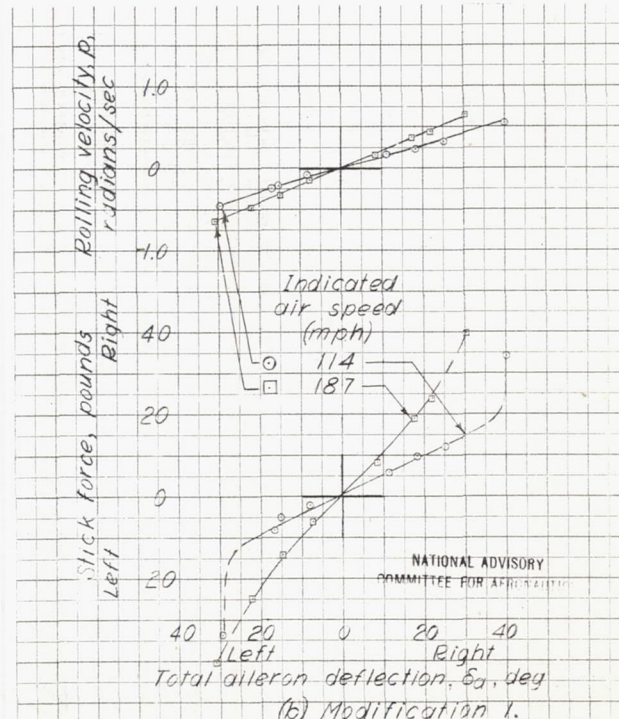 Rolling velocity, p,
radians/sec
1.0
0
-1.0
Indicated
air speed
(mph)
114
187
Stick force, pounds
Left
Right
40
20
0
20
NATIONAL ADVISORY
COMMITTEE FOR AERONAUTICS
40 20 0 20 40
Left Right
Total aileron deflection, δa, deg
(b) Modification 1.